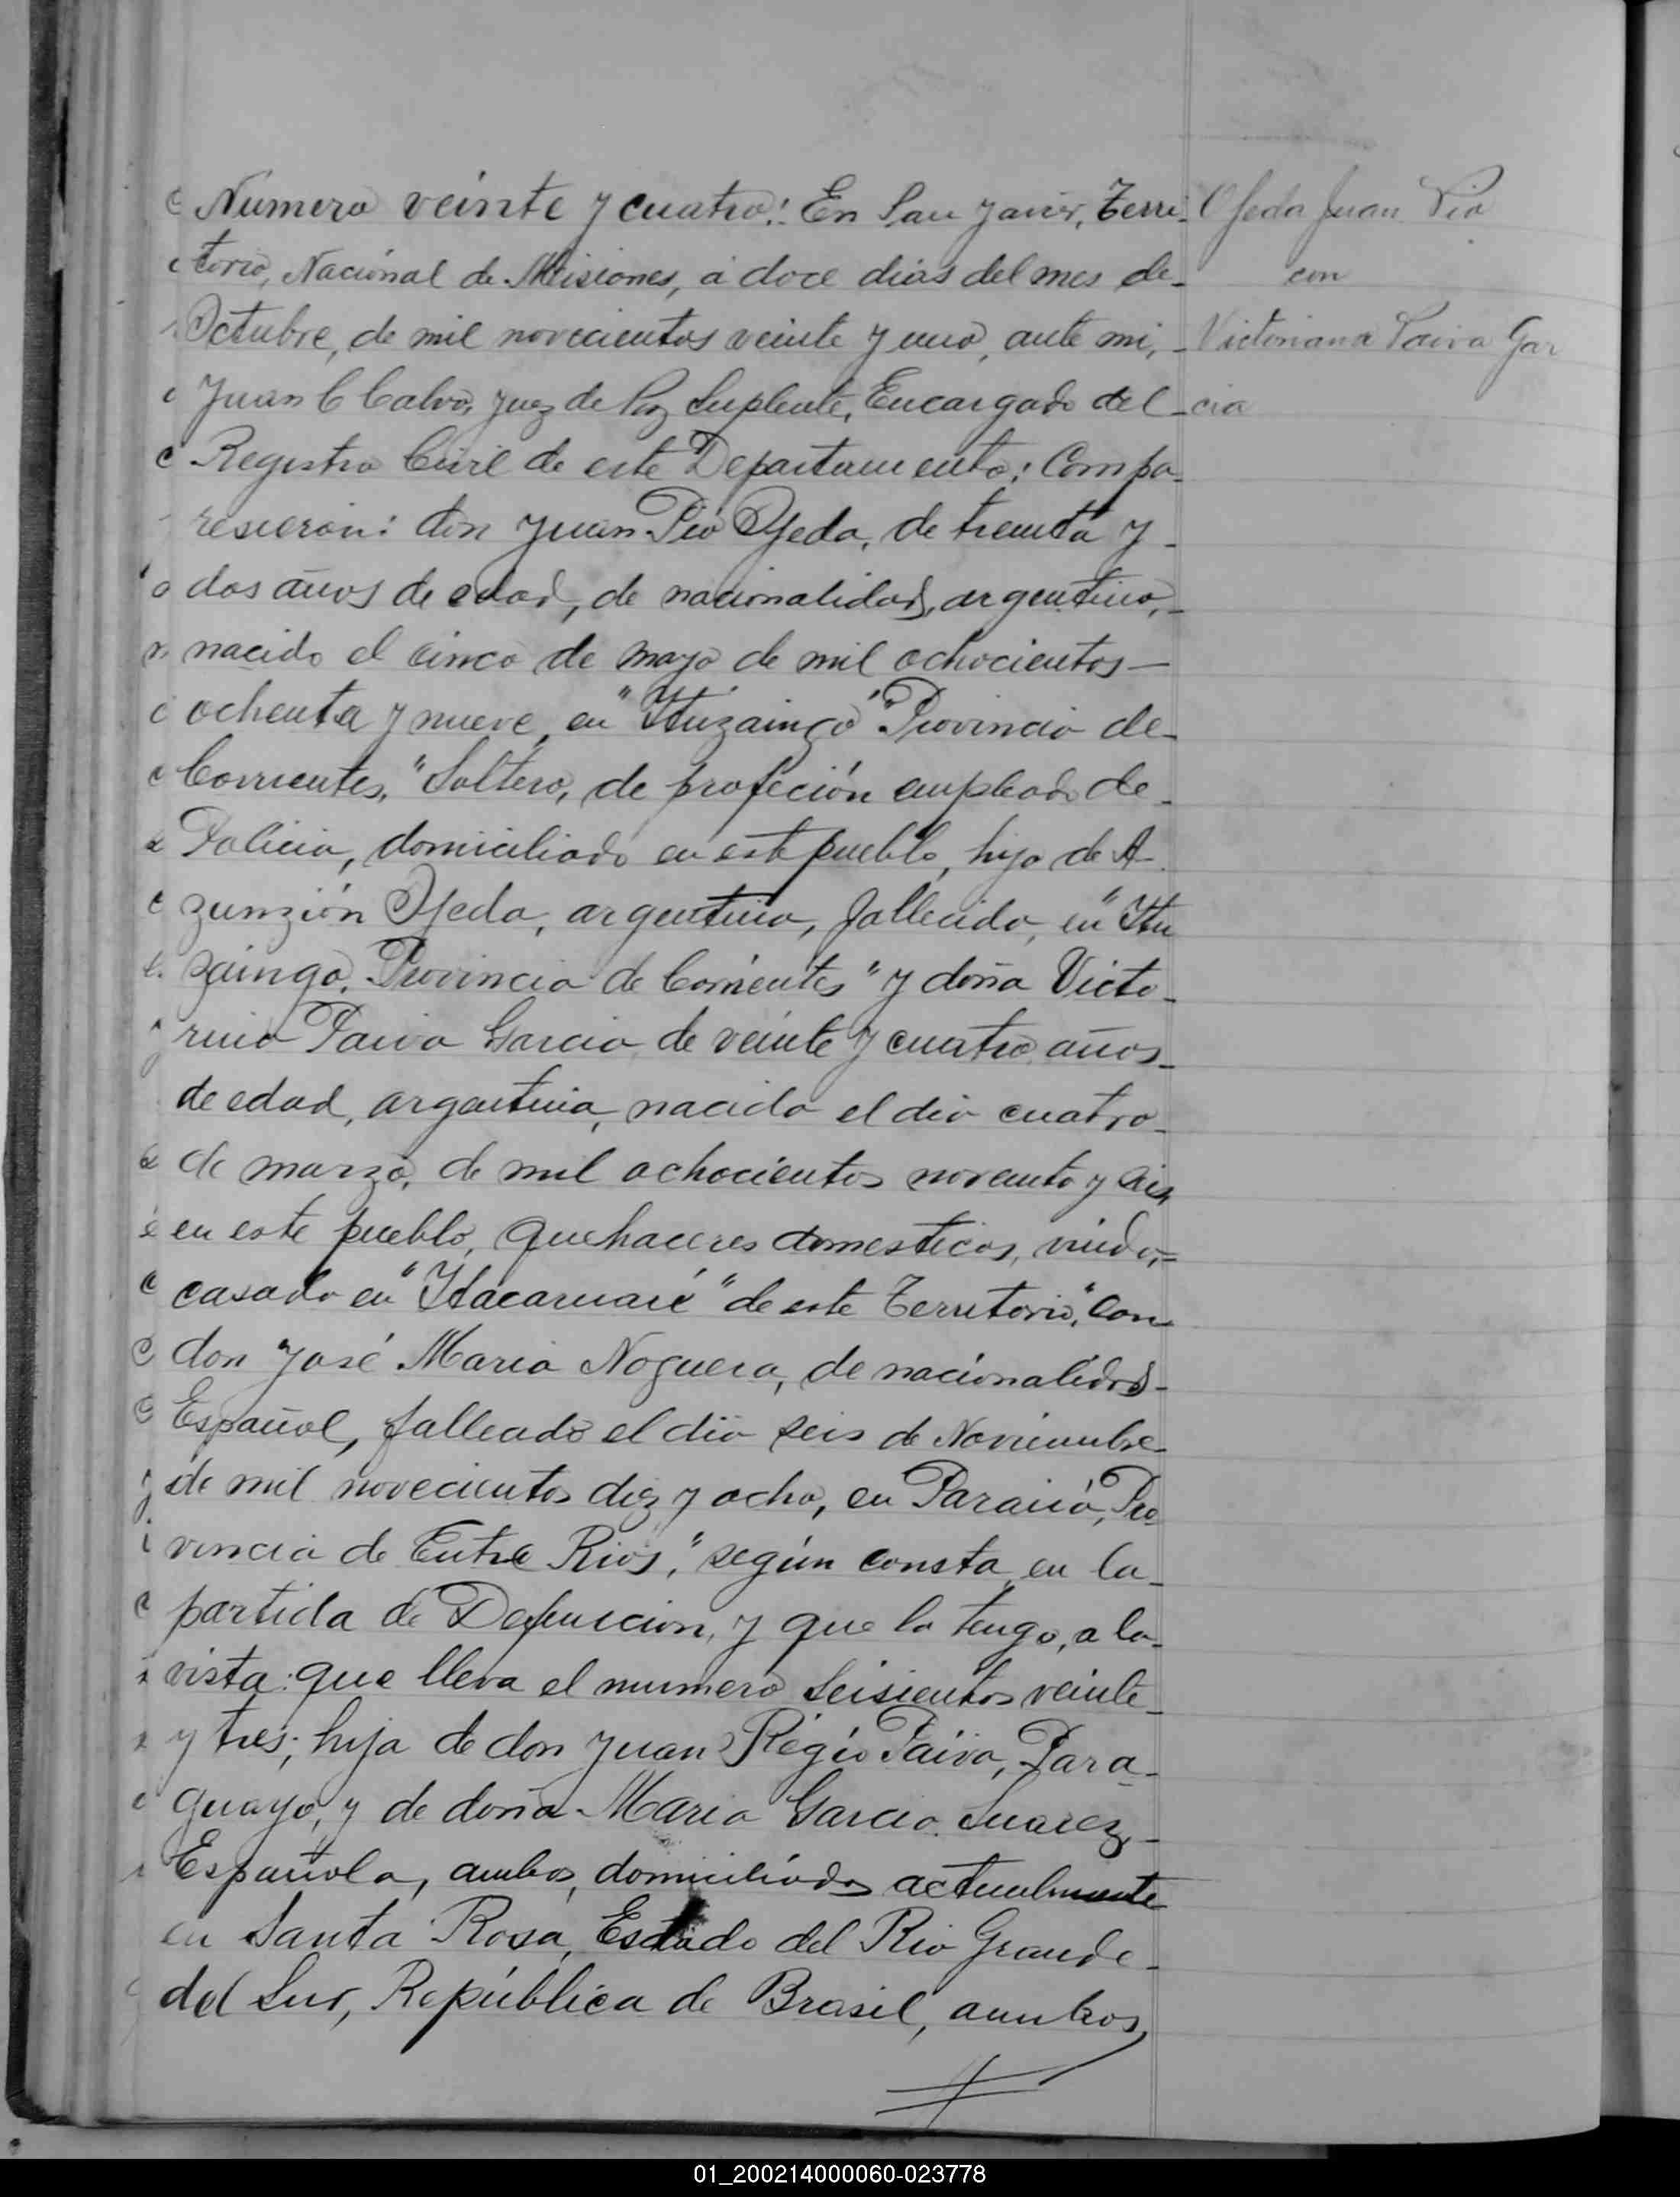 Número veinte y cuatro: En San Javier, Terri-
torio, Nacional de Misiones, a doce dias del mes de-
Octubre, de mil novecientos veinte y uno, ante mi,-
Juan C Calvo, Juez de Paz Suplente, Encargado del-
Registro Civil de este Departamento; Compa-
resieron: don Juan Pio Ojeda, de treinta y-
dos años de edad, de nacionalidad, argentino,-
nacido el cinco de mayo de mil ochocientos-
ochenta y nueve, en "Ituzaingo" Provincia de-
Corrientes," Soltero, de profeción empleado de-
Policia, domiciliado en este pueblo, hijo de A-
zunzión Ojeda, argentina, fallecida, en "Itu
zaingo, Provincia de Corrientes" y doña Victo-
rina Paiva Garcia de veinte y cuatro años-
de edad, argentina, nacida el dia cuatro-
de marzo, de mil ochocientos noventa y seis,
en este pueblo, quehaceres domesticos, viuda,-
casada en "Itacaruaré" de este Territorio," con-
don José Maria Noguera, de nacionalidad-
Español, fallecido el dia seis de Noviembre-
de mil novecientos diez y ocho, en Paraná, Pro-
vincia de Entre Rios," según consta en la-
partida de Defuncion, y que la tengo, a la-
vista: que lleva el numero seisientos veinte-
y tres; hija de don Juan Régio Paiva, Para-
guayo, y de doña Maria Garcia Suarez,-
Española, ambos, domiciliados actualmente
en Santa Rosa, Estado del Rio Grande-
del Sur, República de Brasil, ambos,
Ojeda Juan Pio
con
Victoriana Paiva Gar
cia
01_200214000060-023778